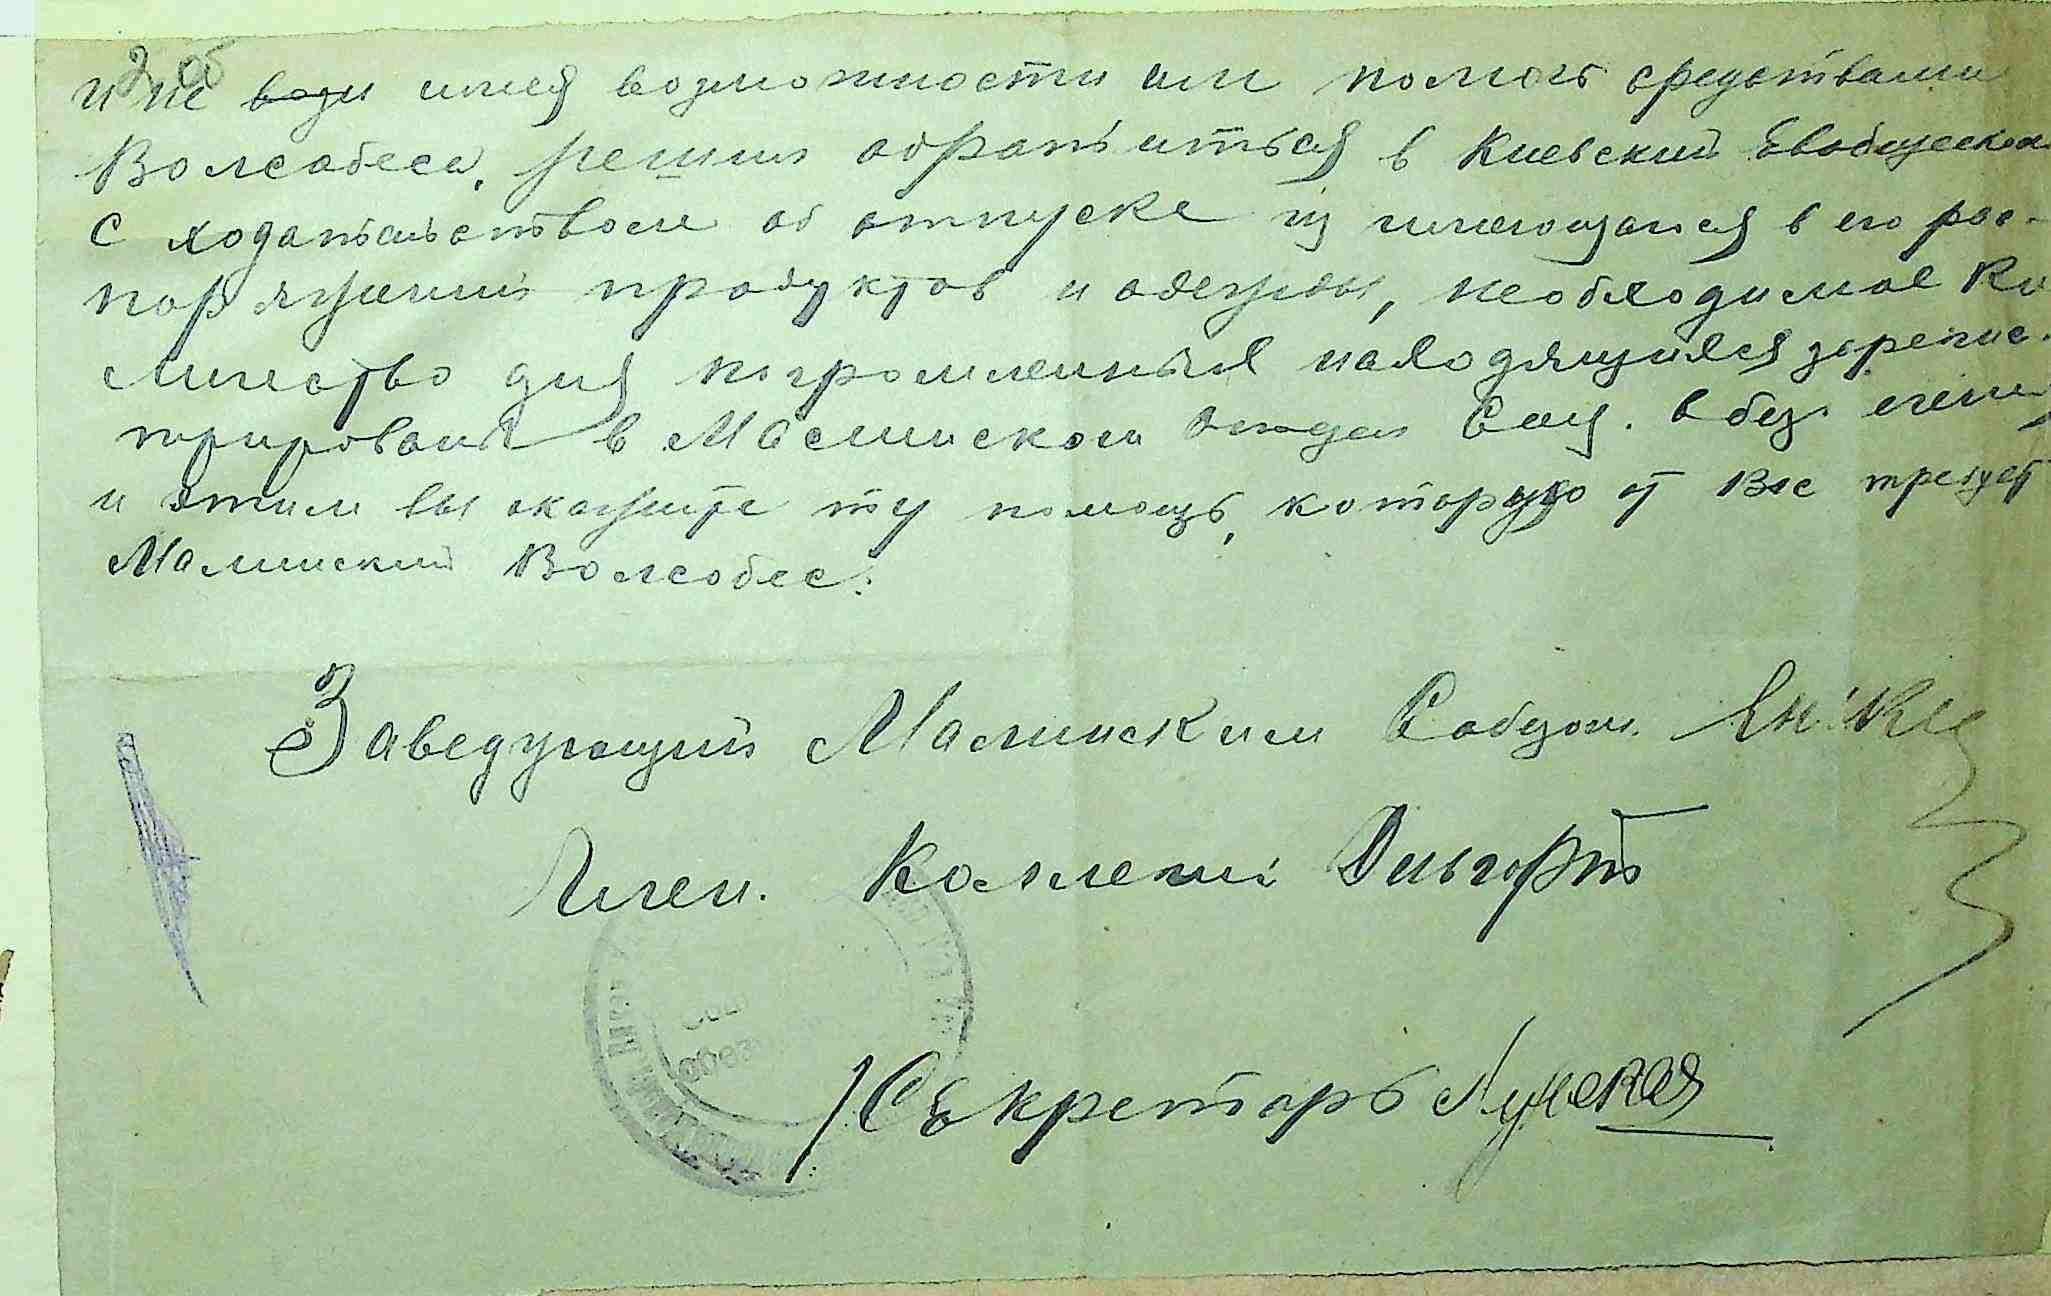 2 об
и не води имея возможности им помочь средствами
Волсобеса, решил обратиться в Киевский Евобщеском
с ходатайством об отпуске из имеющаися в его рас-
поряжении продуктов и одежды, необходимое ко
личество для погромленных находящихся зарегис-
трирован в Малинском отдел Соц.
и этим вы окажите ту помощь, которую от Вас требует
Малинский Волсобес.
Заведующий Малинским Собезом
Член. Колегии
Секретарь